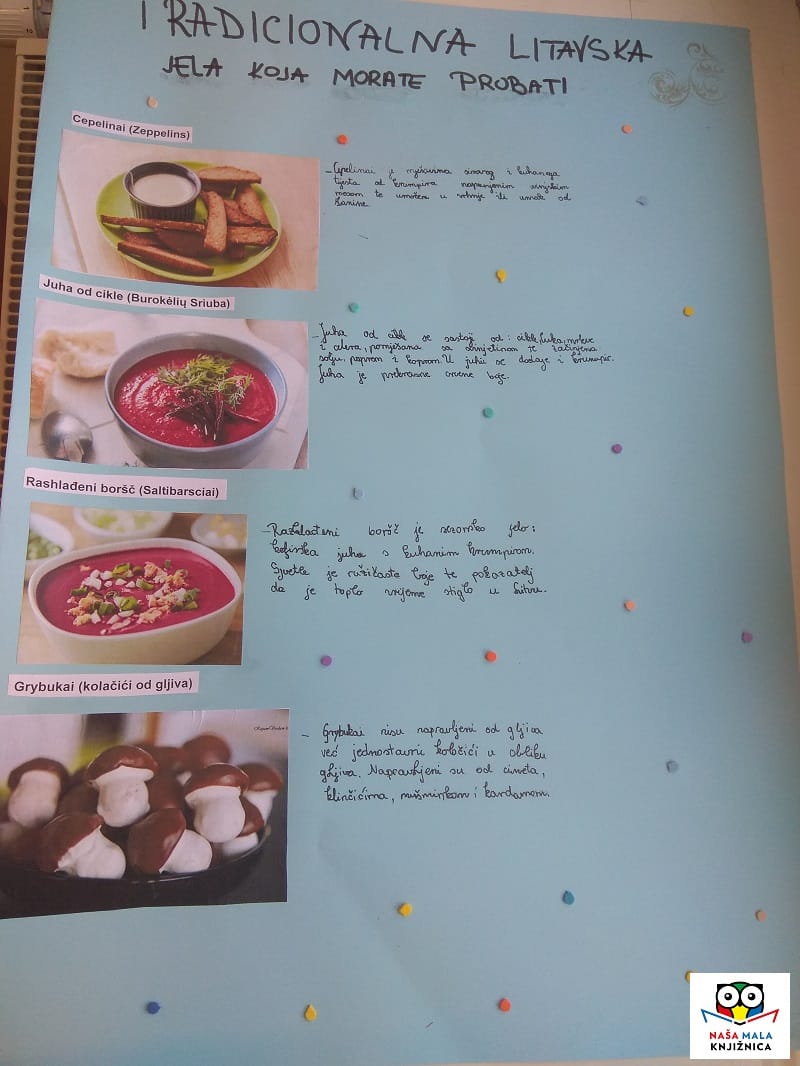 TRADICIONALNA LITAVSKA
JELA KOJA MORATE PROBATI
Cepelinai (Zeppelins)
- Cepelinai je mješavina sirovog i kuhanog
tijesta od krumpira napunjenim svinjskim
mesom te umočen u vrhnje ili umak od
slanine
Juha od cikle (Burokėlių Sriuba)
- Juha od cikle se sastoji od: cikle, luka, mrkve
i celera, pomješana sa svinjetinom te začinjena
solju, paprom i koprom. U juhu se dodaje i krumpir.
Juha je prekrasne crvene boje.
Rashlađeni boršč (Saltibarsciai)
- boršč je sezonsko jelo:
kefirska juha s kuhanim krumpirom.
Svjetlo je ružičaste boje te pokazatelj
da je toplo vrijeme stiglo u Litvu.
Grybukai (kolačići od gljiva)
- Grybukai nisu napravljeni od gljiva
već jednostavni kolačići u obliku
gljiva. Napravljeni su od cimeta,
klinčićima, i
NAŠA MALA
KNJIŽNICA